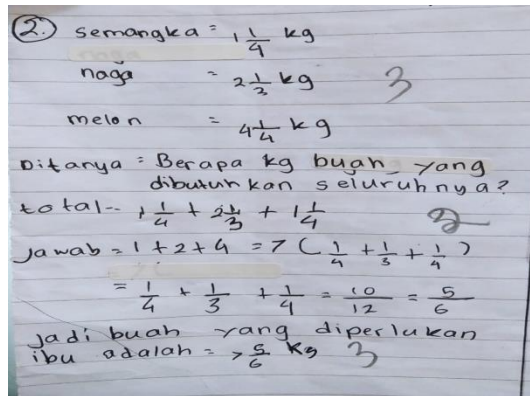 2. semangka = 1 1/4 kg
naga = 2 1/3 kg 3
melon = 4 1/4 kg
Ditanya = Berapa kg buah yang
dibutuhkan seluruhnya?
total = 1 1/4 + 2 1/3 + 1 1/4
2
Jawab = 1 + 2 + 4 = 7 ( 1/4 + 1/3 + 1/4 )
= 1/4 + 1/3 + 1/4 = 10/12 = 5/6
Jadi buah yang diperlukan
ibu adalah = 7 5/6 kg 3